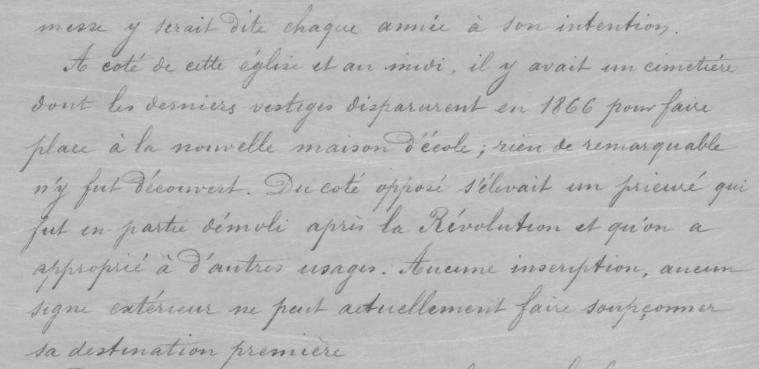 messe y serait dite chaque année à son intention.
A coté de cette église et au midi, il y avait un cimetière
dont les derniers vestiges disparurent en 1866 pour faire
place à la nouvelle maison d'école ; rien de remarquable
n'y fut découvert. Du coté opposé s'élevait un prieuré qui
fut en partie démoli après la Révolution et qu'on a
approprié à d'autres usages. Aucune inscription, aucun
signe extérieur ne peut actuellement faire soupçonner
sa destination première